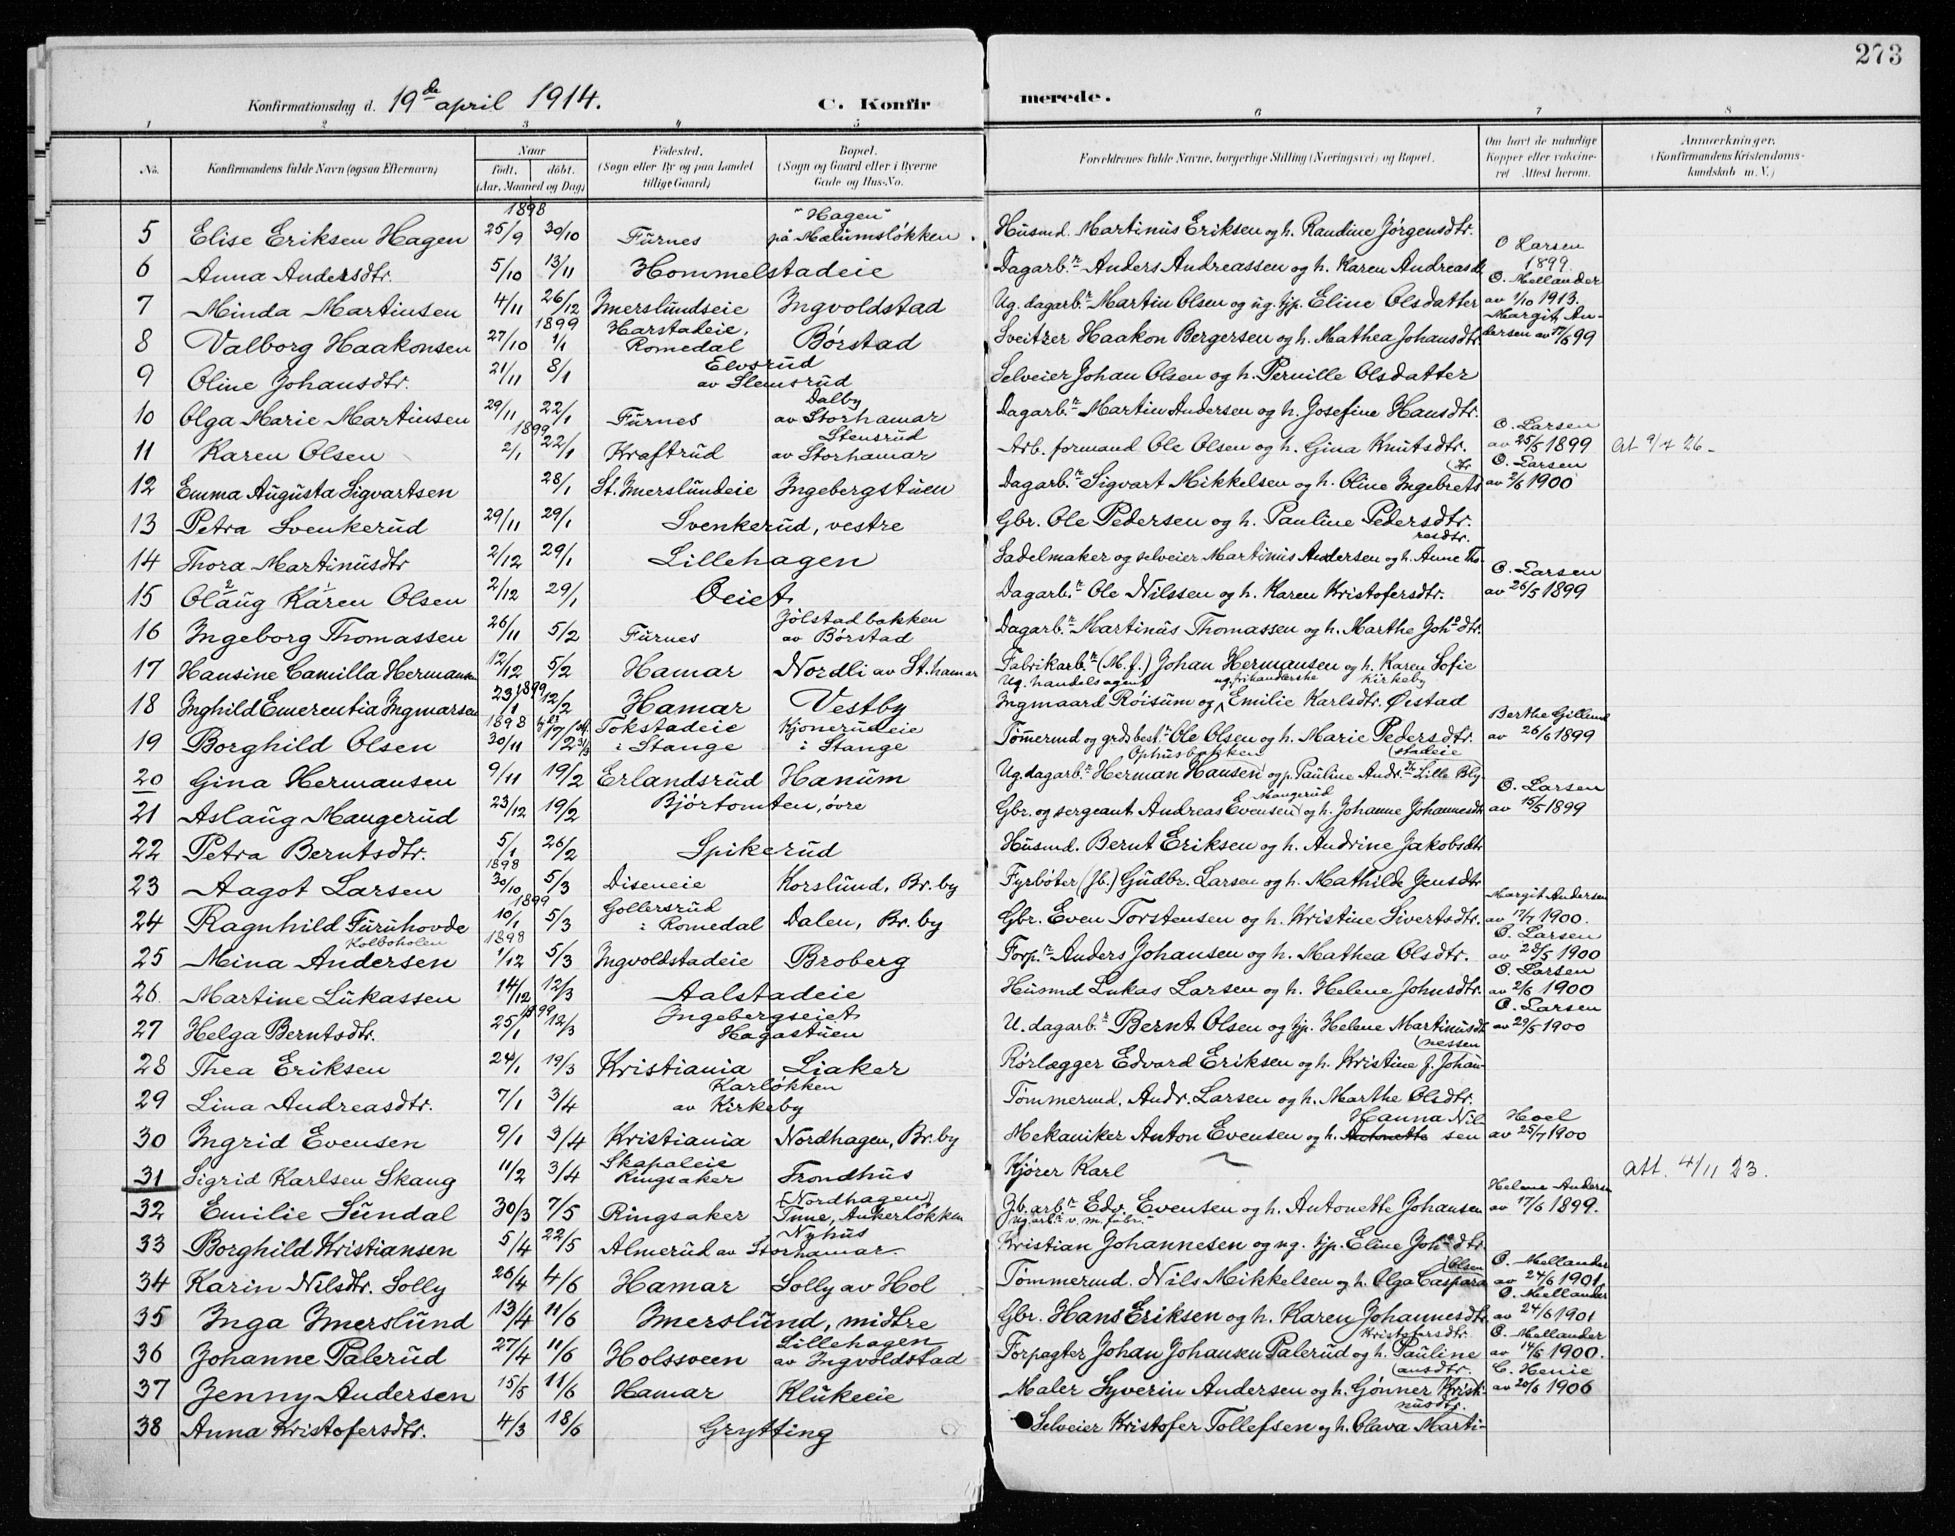 273
Konfirmationsdag d. 19de april 1914. C. Konfirmerede.
1 2 3 4 5 6 7 8
No. Konfirmandens fulde Navn (ogsaa Efternavn) Naar født. døbt. (Aar, Maaned og Dag) Fødested. (Sogn eller By og paa Landet tillige Gaard) Bopæl. (Sogn og Gaard eller i Byerne Gade og Hus-No. Forældrenes fulde Navne, borgerlige Stilling (Næringsvei) og Bopæl. Om havt de naturlige Kopper eller vakcineret Attest herom. Anmærkninger. (Konfirmandens Kristendomskundskab m. V.)
1898
5 Elise Eriksen Hagen 25/9 30/10 Furnes "Hagen" på Mælumsløkken. Husmd. Martinus Eriksen og h. Randine Jørgensdtr.
6 Anna Andersdtr. 5/10 13/11 Hommelstadeie Dagarb.r Anders Andreassen og h. Karen Andreasd. O Larsen 1899
7 Minda Martinsen 4/11 26/12 Imerslundseie Ingvoldstad Ug. dagarb.r Martin Olsen og ug. tjp. Eline Olsdatter O. Mellander av 1/10 1913.
8 Valborg Haakonsen 27/10 1899 1/1 Harstadeie, Romedal Børstad Sveitzer Haakon Bergersen og h. Mathea Johansdtr. Margit Andersen av 17/6 99
9 Oline Johansdtr. 21/11 8/1 Elvsrud av Slemsrud Selveier Johan Olsen og h. Pernille Olsdatter
10 Olga Marie Martinsen 29/11 22/1 Furnes Dalby av Storhamar Dagarb.r Martin Andersen og h. Josefine Hansdtr.
11 Karen Olsen 1899 2/1 22/1 Kraftrud Stensrud av Storhamar Arb. formand Ole Olsen og h. Gina Knutsdtr. O. Larsen av 25/5 1899 At 9/4 26-
12 Emma Augusta Sigvartsen 28/1 St. Imerslundeie Ingebergstuen Dagarb.r Sigvart Mikkelsen og h. Oline Ingebretsdtr O. Larsen av 2/6 1900
13 Petra Svenkerud 29/11 29/1 Svenkerud, vestre Gbr. Ole Pedersen og h. Pauline Pedersdtr.
14 Thora Martinusdtr 2/12 29/1 Lillehagen Sadelmaker og selveier Martinus Andersen og h. Anne Thoresdtr.
15 Olaug Karen Olsen 2/12 29/1 Oeiet Dagarb.r Ole Nilssen og h. Karen Kristofersdtr. O. Larsen av 26/5 1899
16 Ingeborg Thomassen 26/11 5/2 Furnes Jølstadbakken av Børstad Dagarb.r Martinus Thomassen og h. Marthe Joh.s dtr.
17 Hansine Camilla Hermansen 12/12 5/2 Hamar Nordli av St.hamar Fabrikarb.r (M.f.) Johan Hermansen og h. Karen Sofie Kirkeby
18 Inghild Emerentia Ingmarsen 23/1 1899 12/2 Hamar Vestby Ug. handelsagent Ingmaard Røisum og Emilie Karlsdtr. Østad
19 Borghild Olsen 1898 30/11 17/2 Tokstadeie i Stange Kjonerudeie i Stange Tømmermd og grdsbest.r Ole Olsen og h. Marie Pedersdtr. Berthe Gillund av 26/6 1899
20 Gina Hermansen 9/11 19/2 Erlandsrud Hanum Ug. dagarb.r Herman Hansen Ophusbakken og p. Pauline Andr. dtr Lille Blystadeie
21 Aslaug Mangerud 23/12 19/2 Bjørtomten, øvre Gbr. og sergeant Andreas Evensen Mangerud og h. Johanne Johannesdtr O. Larsen av 15/5 1899
22 Petra Berntsdtr. 5/1 26/2 Spikerud Husmd. Bernt Eriksen og h. Andrine Jakobsdtr
23 Aagot Larsen 1898 30/10 5/3 Diseneie Korslund, Br.by Fyrbøter (Jb.) Gudbr. Larsen og h. Mathilde Jensdtr
24 Ragnhild Furuhovde 1899 10/1 5/3 Gollersrud i Romedal Dalen, Br.by Gbr. Even Torstensen og h. Kristine Sivertsdtr. Margit Andersen av 17/7 1900.
25 Mina Andersen Kolboholen 1898 1/12 5/3 Ingvoldstadeie Broberg Forp.r Anders Johansen og h. Mathea Olsdtr. O. Larsen av 28/5 1900
26 Martine Lukassen 14/12 12/3 Aalstadeie Husmd Lukas Larsen og h. Helene Johnsdtr. O. Larsen av 2/6 1900
27 Helga Berntsdtr. 1899 25/1 12/3 Ingebergseiet Hagastuen U. dagarb.r Bernt Olsen og tjp. Helene Martinusdt. O. Larsen av 29/5 1900
28 Thea Eriksen 24/1 19/3 Kristiania Liaker Rørlægger Edvard Eriksen og h. Kristine f. Johannessen
29 Lina Andreasdtr. 7/1 3/4 Karløkken av Kirkeby Tømmermd. Andr. Larsen og h. Marthe Olsdtr.
30 Ingrid Evensen 9/1 3/4 Kristiania Nordhagen, Br.by Mekaniker Anton Evensen og h. Antonette Hanna Nilsen Hoel av 25/7 1900
31 Sigrid Karlsen Skang 11/2 3/4 Skapaleie Ringsaker Trondhus Kjører Karl Att. 4/11 23.
32 Emilie Sundal 30/3 7/5 Ringsaker [Nordhagen] Tune, Ankerløkken Jb. arb.r Edv. Evensen og h. Antonette Johansen Helene Andersen av 17/6 1899.
33 Borghild Kristiansen 5/4 22/5 Almerud av Storhamar Nyhus Ug arb.r v. m. fabr. Kristian Johannesen og ug. tjp. Eline Joh.s dtr.
34 Karin Nilsdtr. Solly 26/4 4/6 Hamar Solly av Hol Tømmermd. Nils Mikkelsen og h. Olga Caspara Olsen O. Mellander av 24/6 1901
35 Inga Imerslund 13/4 11/6 Imerslund, midtre Gbr. Hans Eriksen og h. Karen Johannesdtr. O. Mellander av 24/6 1901
36 Johanne Palerud 27/4 11/6 Holssveen Lillehagen av Ingvoldstad Forpagter Johan Johansen Palerud og h. Pauline Kristofersdtr. O. Mellander av 14/6 1900.
37 Jenny Andersen 15/5 11/6 Hamar Klukeie Maler Syverin Andersen og h. Gønner Kristiansdtr. C. Henie av 20/6 1906
38 Anna Kristofersdtr. 4/3 18/6 Grytting Selveier Kristofer Tollefsen og h. Olava Martinusdtr.